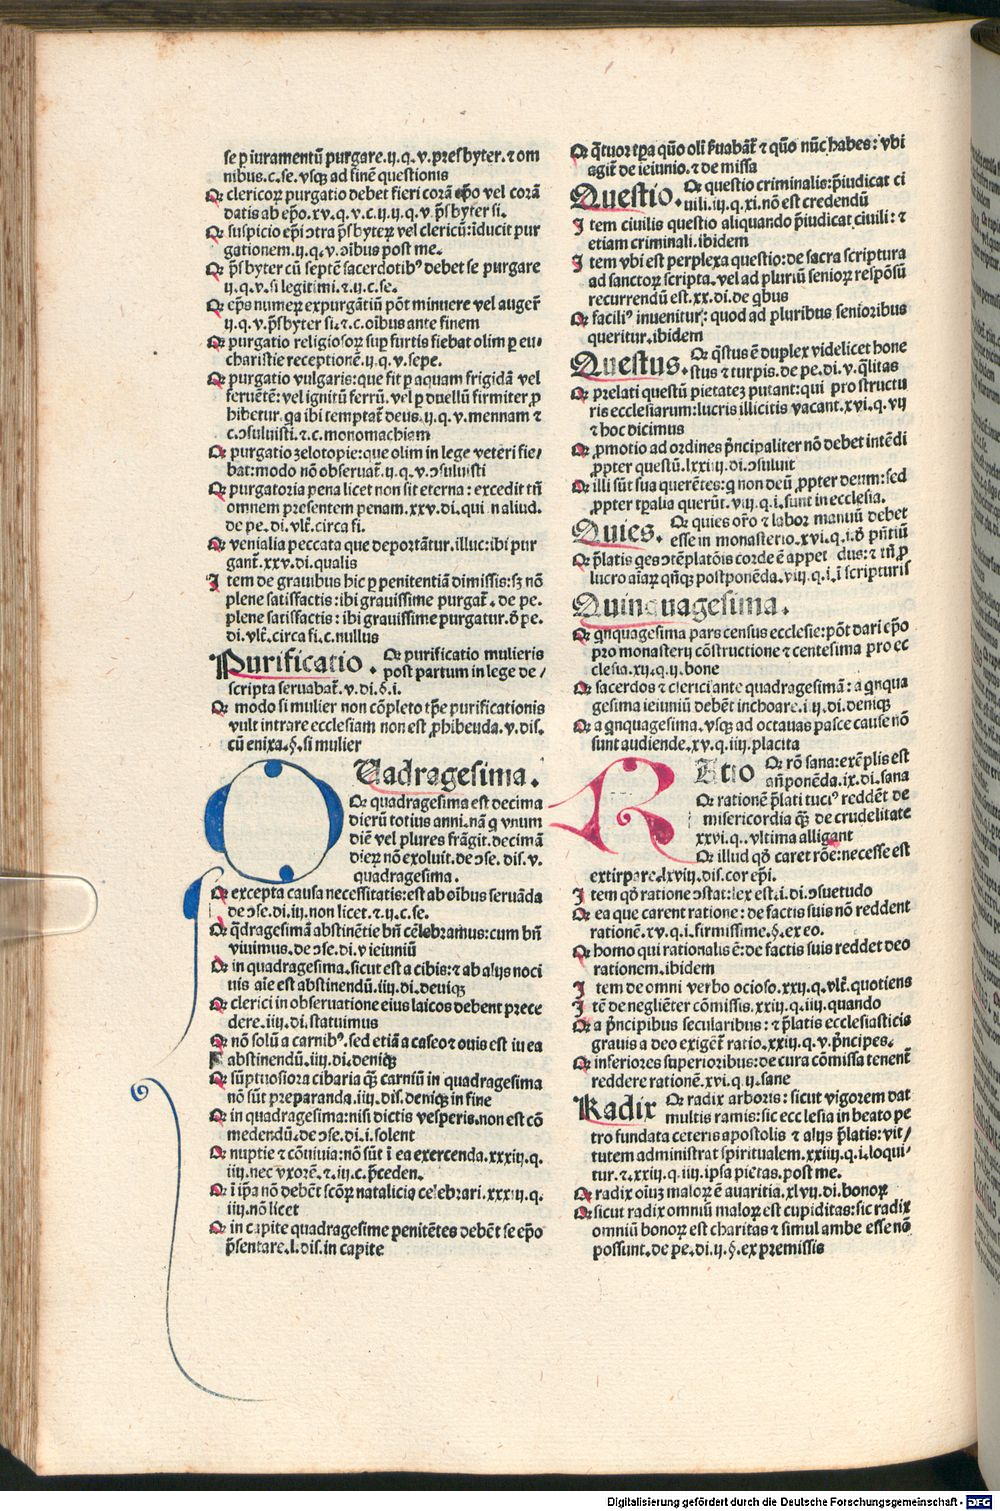 se ꝑ iuramentū purgare.ij.q.v.presbyter.⁊ om
nibus.c.se.vsqꝫ ad finē questionis
Qꝛ clericoꝝ purgatio debet fieri corā epo vel corā
datis ab ep̄o.xv.q.v.c.ij.ij.q.v.p̄sbyter si.
Qꝛ suspicio ep̄i ꝯtra p̄sbyteꝝ vel clericū:iducit pur
gationem.ij.q.v.ꝯibus post me.
Qꝛ p̄sbyter cū septē sacerdotibꝰ debet se purgare
ij.q.v.si legitimi.⁊ ij.c.se.
Qꝛ ep̄s numeꝝ expurgātiū pōt minuere vel auger̄
ij.q.v.p̄sbyter si.⁊.c.oībus ante finem
Qꝛ purgatio religiosoꝝ sup furtis fiebat olim ꝑ eu⸗
charistie receptionē.ij.q.v.sepe.
Qꝛ purgatio vulgaris:que fit ꝑ aquam frigidā vel
feruētē:vel ignitū ferrū.vel ꝑ duellū firmiter ꝓ
hibetur.qa ibi temptat̄ deus.ij.q.v.mennam ⁊
c.ꝯsuluisti.⁊.c.monomachiam
Qꝛ purgatio zelotopie:que olim in lege veteri fie⸗
bat:modo nō obseruat̄.ij.q.v.ꝯsuluisti
Qꝛ purgatoria pena licet non sit eterna:excedit tn̄
omnem presentem penam.xxv.di.qui n aliud.
de pe.di.vlt̄.circa fi.
Qꝛ venialia peccata que deportātur.illuc:ibi pur
gant̄.xxv.di.qualis
Item de grauibus hic ꝑ penitentiā dimissis:sꝫ nō
plene satisfactis:ibi grauissime purgat̄.de pe.
plene satisfactis:ibi grauissime purgatur.ō pe.
di.vlt̄.circa fi.c.nullus
Purificatio. Qꝛ purificatio mulieris
post partum in lege de/
scripta seruabat̄.v.di.§.i.
Qꝛ modo si mulier non cōpleto tp̄e purificationis
vult intrare ecclesiam non est ꝓhibenda.v.dis.
cū enixa.§.si mulier
QUadragesima.
Qꝛ quadragesima est decima
dierū totius anni.nā q vnum
diē vel plures frāgit.decimā
dieꝝ nō exoluit.de ꝯse.dis.v.
quadragesima.
Qꝛ excepta causa necessitatis:est ab oībus seruāda
de ꝯse.di.iij.non licet.⁊ ij.c.se.
Qꝛ q̄dragesimā abstinētie bn̄ cēlebramus:cum bn̄
viuimus.de ꝯse.di.v ieiuniū
Qꝛ in quadragesima.sicut est a cibis:⁊ ab alijs noci
uis aīe est abstinendū.iiij.di.deniqꝫ
Qꝛ clerici in obseruatione eius laicos debent prece
dere.iiij.di.statuimus
Qꝛ nō solū a carnibꝰ.sed etiā a caseo ⁊ ouis est in ea
abstinendū.iiij.di.deniqꝫ
Qꝛ sūptuosiora cibaria q̄ꝫ carniū in quadragesima
nō sūt preparanda.iiij.dis.deniqꝫ in fine
Qꝛ in quadragesima:nisi dictis vesperis.non est cō
medendū.de ꝯse.di.i.solent
Qꝛ nuptie ⁊ cōniuia:nō sūt ī ea exercenda.xxxiij.q.
iiij.nec vxorē.⁊ iij.c.p̄ceden.
Qꝛ ī ip̄a nō debēt scōꝝ natalicia celebrari.xxxiij.q.
iiij.nō licet
Qꝛ in capite quadragesime penitētes debēt se ep̄o
p̄sentare.l.dis.in capite
Qꝛ q̄tuor tꝑa qn̄o olī ẜuabāt̄ ⁊ qn̄o nūc habes:vbi
agit̄ de ieiunio.⁊ de missa
Questio. Qꝛ questio criminalis:p̄iudicat ci
uili.iij.q.xi.nō est credendū
Item ciuilis questio aliquando p̄iudicat ciuili:⁊
etiam criminali.ibidem
Item vbi est perplexa questio:de sacra scriptura
ad sanctoꝝ scripta.vel ad pluriū senioꝝ respōsū
recurrendū est.xx.di.de qbus
Qꝛ faciliꝰ inuenitur:quod ad pluribus senioribus
queritur.ibidem
Questus. Qꝛ q̄stus ē duplex videlicet hone
stus ⁊ turpis.de pe.di.v.q̄litas
Qꝛ prelati questū pietatez putant:qui pro structu
ris ecclesiarum:lucris illicitis vacant.xvi.q.vij
⁊ hoc dicimus
Qꝛ ꝓmotio ad ordines p̄ncipaliter nō debet intēdi
ꝓpter questū.lxxiiij.di.ꝯsuluit
Qꝛ illi sūt sua querētes:q non deū ꝓpter deum:sed
ꝓpter tꝑalia querūt.viij.q.i.sunt in ecclesia.
Quies. Qꝛ quies oīo ⁊ labor manuū debet
esse in monasterio.xvi.q.i.ō p̄ntiū
Qꝛ p̄latis qes ꝯtēplatōis corde ē appet dus:⁊ tn̄ ꝓ
lucro aīaꝝ qn̄qꝫ postponēda.viij.q.i.ī scripturis
Quinquagesima.
Qꝛ qnquagesima pars census ecclesie:pōt dari ep̄o
pro monasterij cōstructione ⁊ centesima pro ec
clesia.xij.q.ij.bone
Qꝛ sacerdos ⁊ clerici ante quadragesimā:a qnqua
gesima ieiuniū debēt inchoare.iiij.di.deniqꝫ
Qꝛ a qnquagesima.vsqꝫ ad octauas pasce cause nō
sunt audiende.xv.q.iiij.placita
RAtio Qꝛ rō sana:exēplis est
an̄ponēda.ix.di.sana
Qꝛ rationē p̄lati tuciꝰ reddēt de
misericordia q̄ꝫ de crudelitate
xxvi.q.vltima alligant
Qꝛ illud qō caret rōe:necesse est
extirpare.lxviij.dis.cor ep̄i.
Item qō ratione ꝯstat:lex est.i.di.ꝯsuetudo
Qꝛ ea que carent ratione:de factis suis nō reddent
rationē.xv.q.i.firmissime.§.ex eo.
Qꝛ homo qui rationalis ē:de factis suis reddet deo
rationem.ibidem
Item de omni verbo ocioso.xxij.q.vlt̄.quotiens
Itē de negliēter cōmissis.xxiij.q.iiij.quando
Qꝛ a p̄ncipibus secularibus:⁊ p̄latis ecclesiasticis
grauis a deo exiget̄ ratio.xxiij.q.v.p̄ncipes.
Qꝛ inferiores superioribus:de cura cōmissa tenent̄
reddere rationē.xvi.q.ij.sane
Radix Qꝛ radix arboris:sicut vigorem dat
multis ramis:sic ecclesia in beato pe
tro fundata ceteris apostolis ⁊ alijs p̄latis:vir/
tutem administrat spiritualem.xxiiij.q.i.loqui/
tur.⁊.xxiij.q.iiij.ipsa pietas.post me.
Qꝛ radix oīuꝫ maloꝝ ē auaritia.xlvij.di.bonoꝝ
Qꝛ sicut radix omniū maloꝝ est cupiditas:sic radix
omniū bonoꝝ est charitas ⁊ simul ambe esse nō
possunt.de pe.di.ij.§.ex premissis
Digitalisierung gefördert durch die Deutsche Forschungsgemeinschaft - DFG